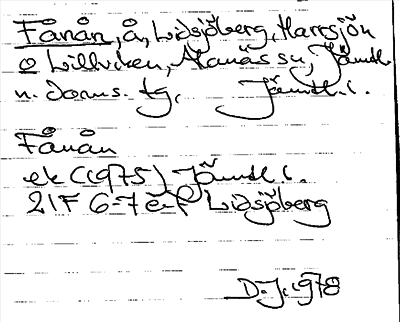 Fånån, å, Lidsjöberg, Harrsjön
o Lillviken, Alanäs sn, Jämtl.
n. doms. tg, Jämtl. l.
Fånån
ek (1975) Jämtl l.
21F 6-7 e-f Lidsjöberg
D.J. 1978